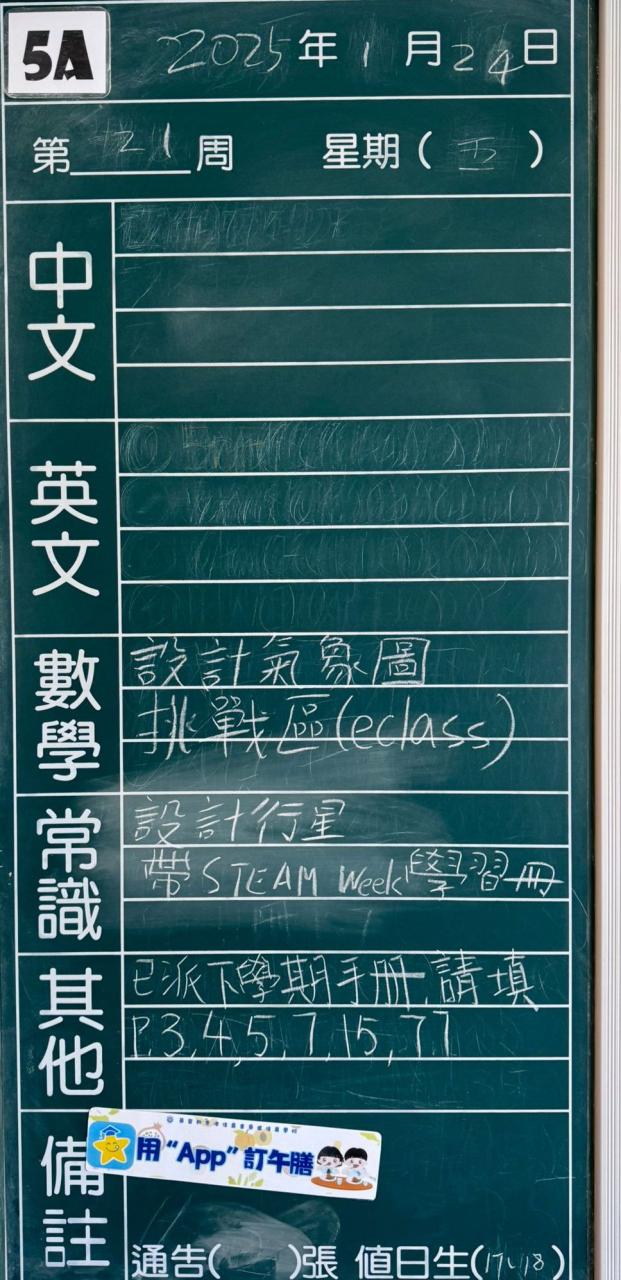 5A 2025年1月24日
第21周 星期(五)
中文
英文
數學
設計氣象圖
挑戰區(eclass)
常識
設計行星
帶STEAM Week學習冊
其他
已派下學期手冊,請填
P.3,4,5,7,15,77
備註
用“App”訂午膳
通告( )張 值日生(17、18)